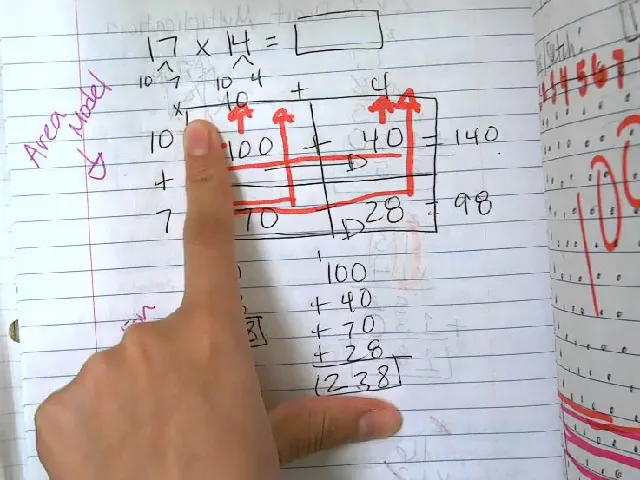 17 x 14 =
10 7 10 4
x 10 + 4
Area Model
10 100 + 40 = 140
+
7 70 28 = 98
100
+ 40
+ 70
+ 28
238
34567
100